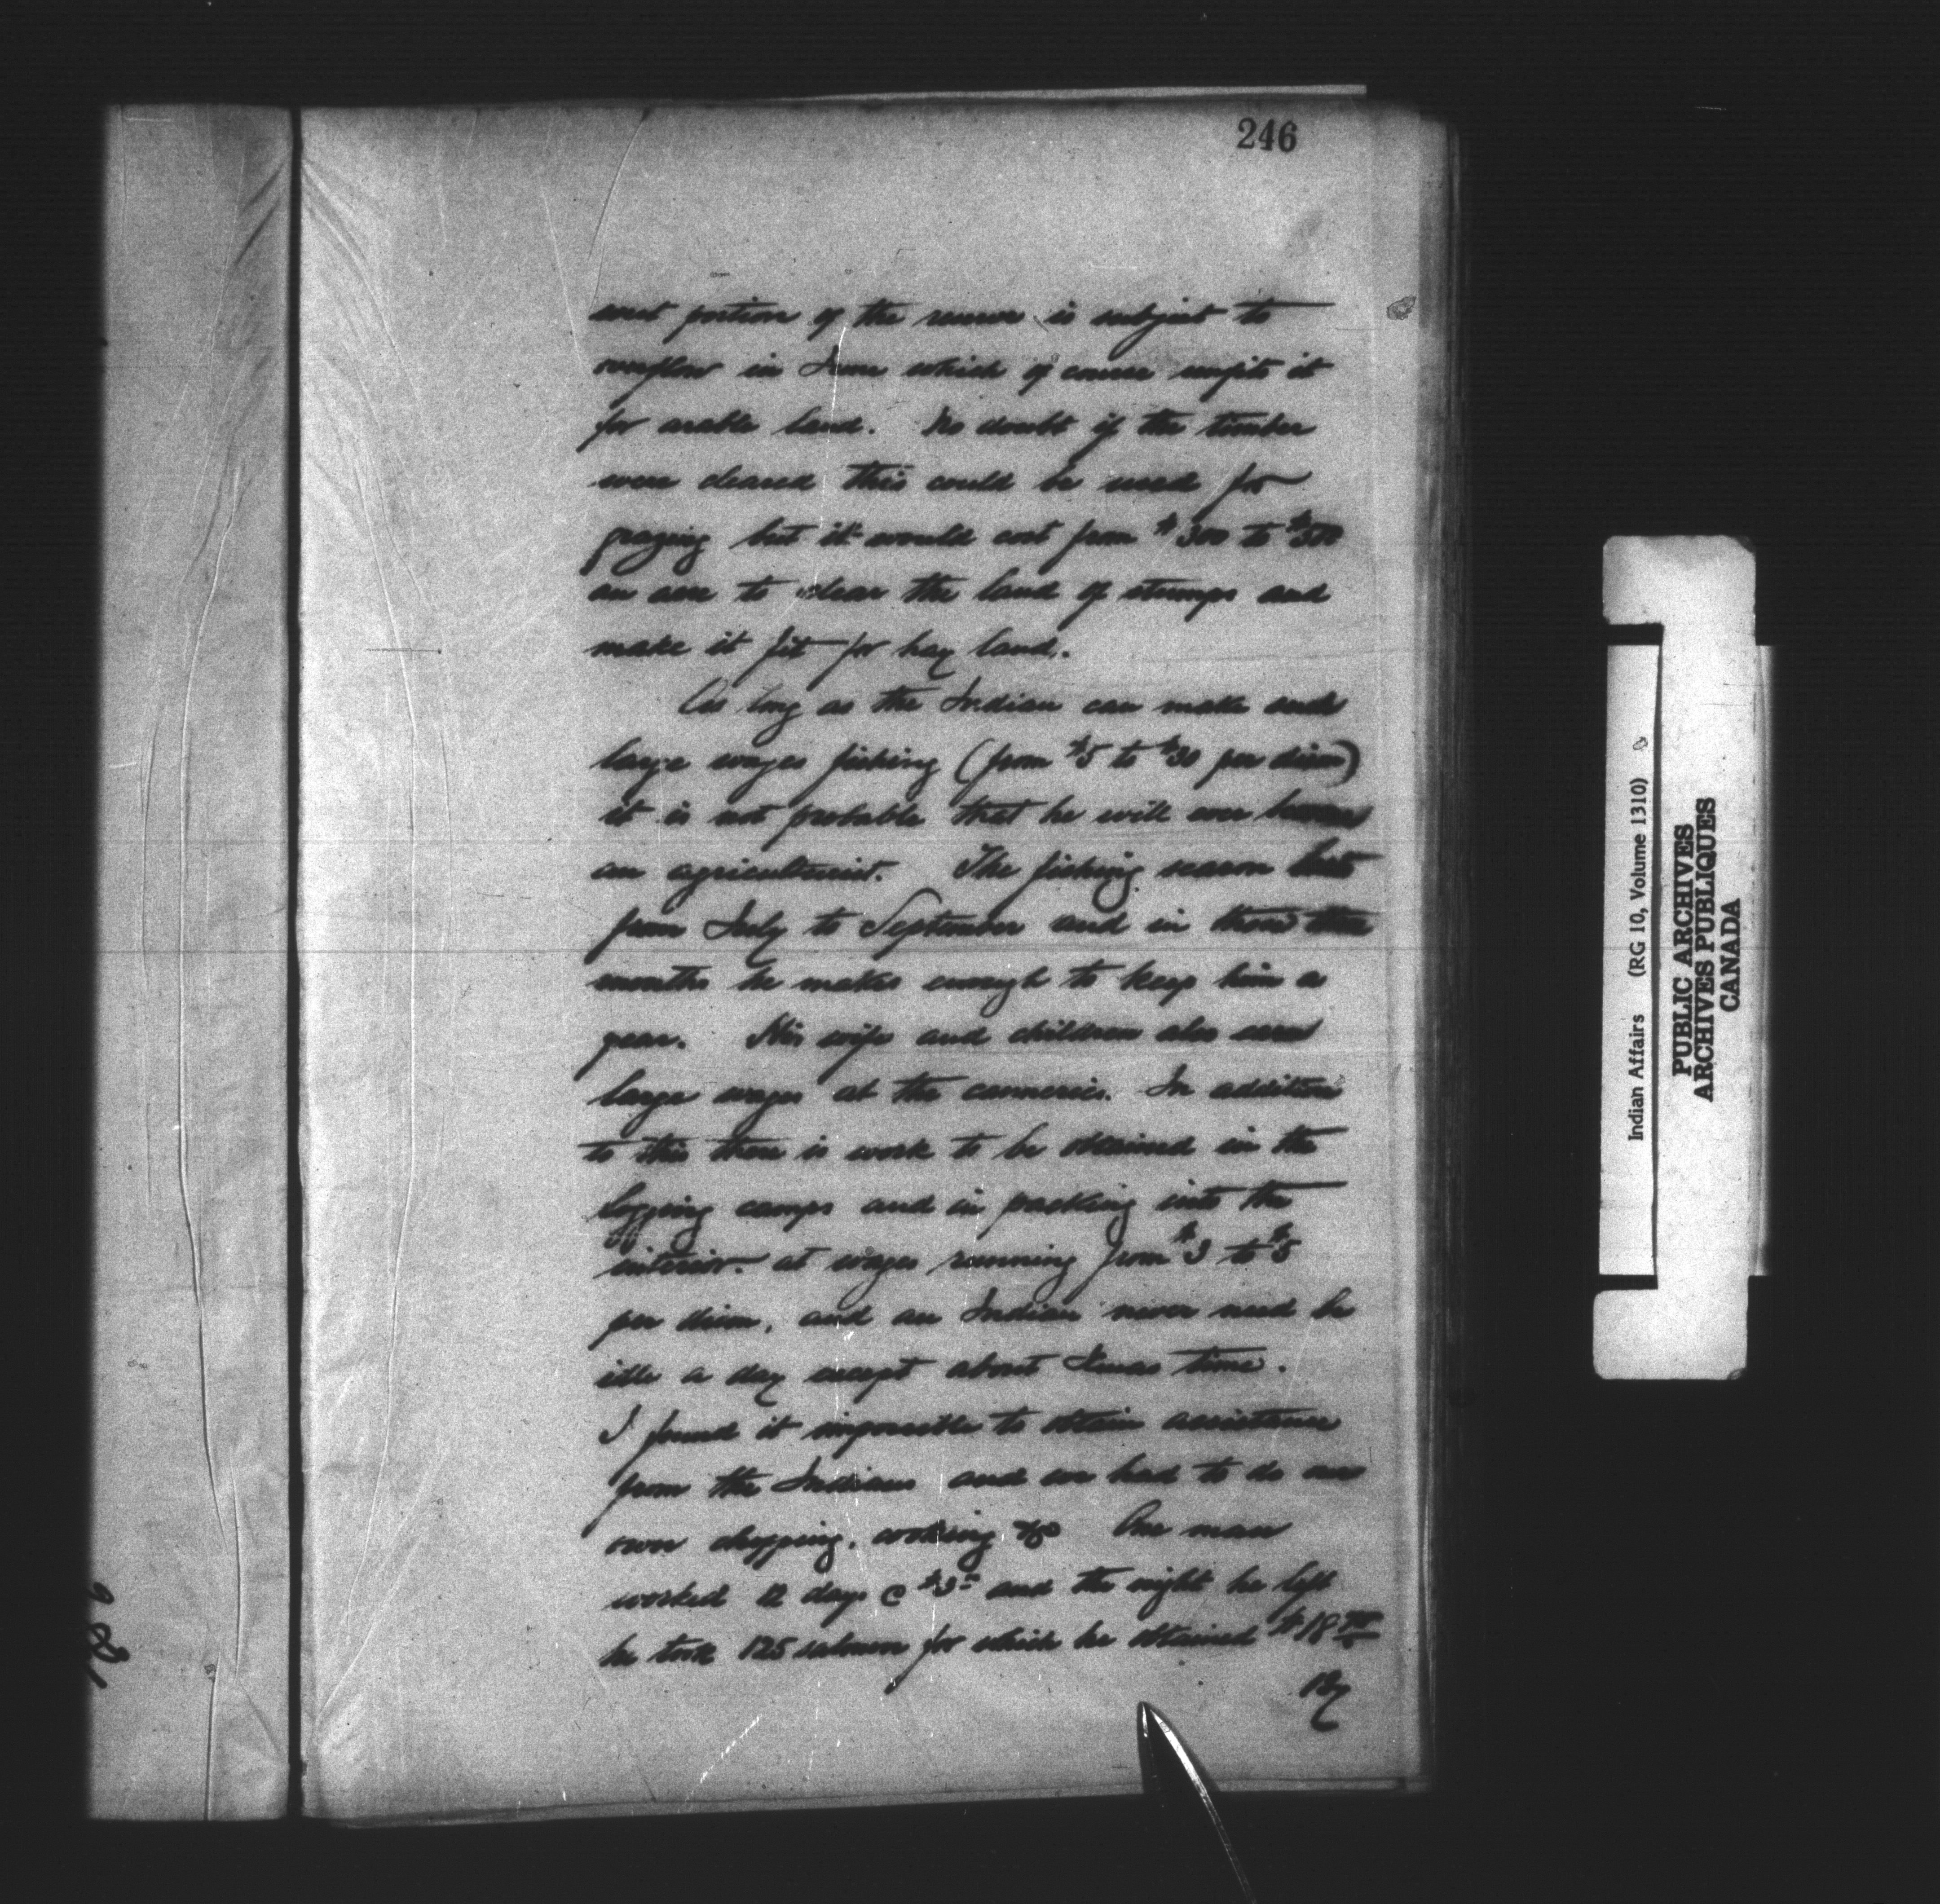 246
west portion of the reserve is subject to
overflow in June which of course unfits it
for arable land. No doubt if the timber
were cleared this could be used for
grazing but it would cost from $300 to $500
an acre to clear the land of stumps and
make it fit for hay land.
As long as the Indian can make such
large wages fishing (from $5 to $30 per diem)
it is not probable that he will ever become
an agriculturist. The fishing season lasts
from July to September and in those three
months he makes enough to keep him a
year. His wife and children also earn
large wages at the canneries. In addition
to this there is work to be obtained in the
logging camps and in packing into the
interior. at wages running from $3 to $5
per diem, and an Indian never need be
idle a day except about Xmas time.
I found it impossible to obtain assistance
from the Indians and we had to do our
own chopping, cooking &c One man
worked 12 days @ $3 and the night he left
he took 125 salmon for which he obtained $18
By
Indian Affairs (RG 10, Volume 1310)
PUBLIC ARCHIVES
ARCHIVES PUBLIQUES
CANADA